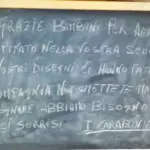 GRAZIE BIMBINI PER AVER
PITATO NELLA VOSTRA SCUO
OSTRI DISEGNI CI HANNO FATT
OMPAGNIA NON SMETTETE MA
EGNARE ABBIAMO BISOGNO
EI SORRISI I CARABINIE